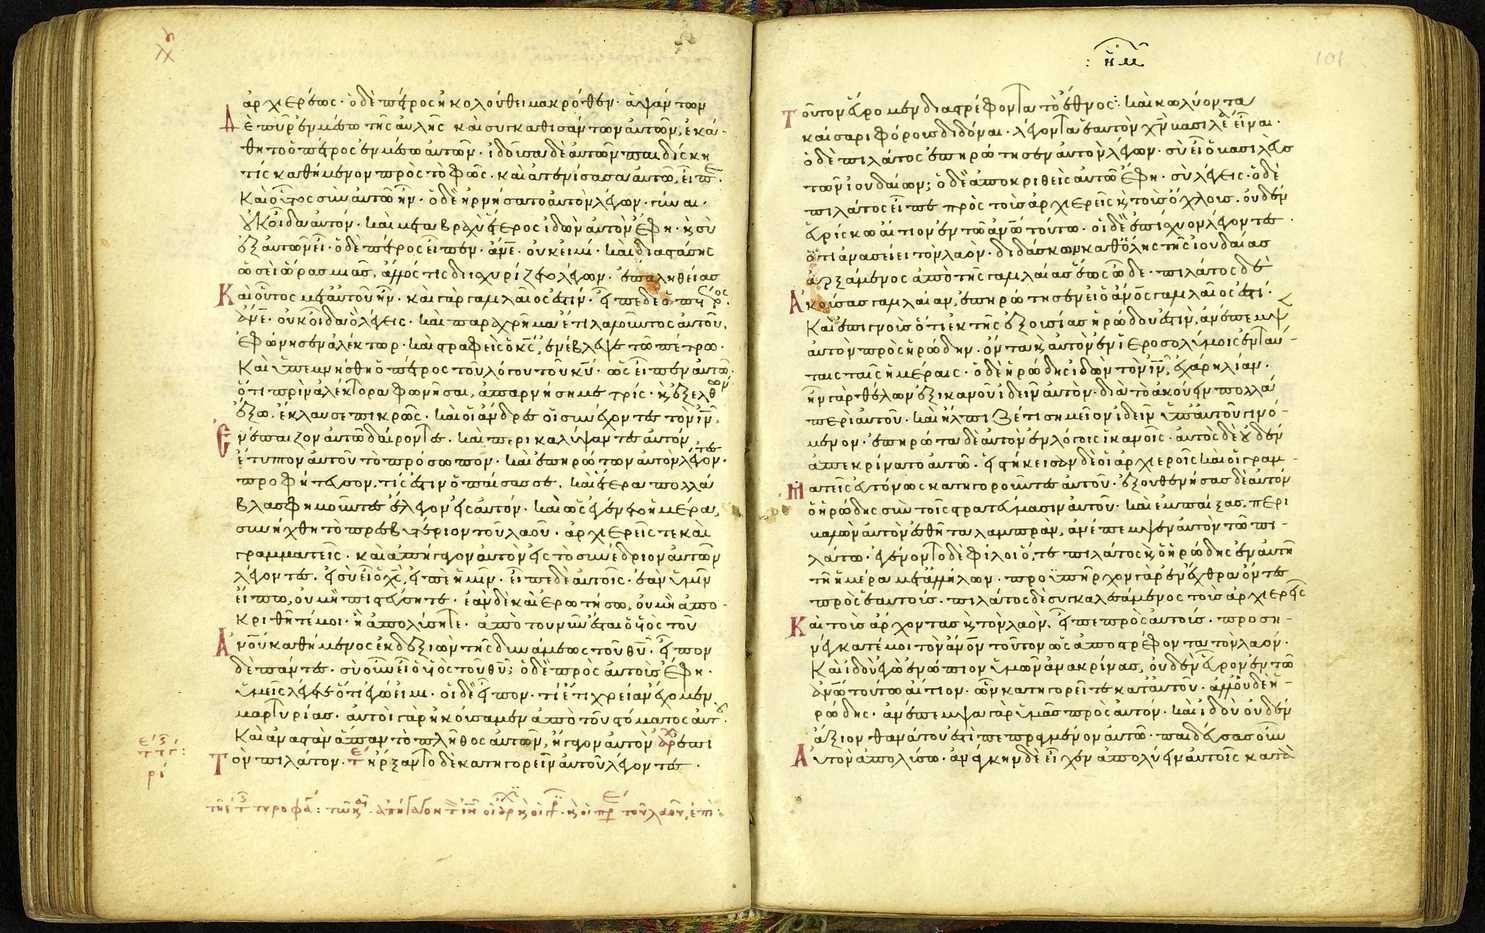 ἀρχιερέως· ὁ δὲ πέτρος ἠκολούθει μακρόθεν· ἁψάντων
δὲ πῦρ ἐν μέσω τῆς αὐλῆς καὶ συγκαθισάντων αὐτῶν, ἐκά-
θητο ὁ πέτρος ἐν μέσω αὐτῶν· ἰδοῦσα δὲ αὐτὸν παιδίσκη
τίς καθήμενον πρὸς τὸ φῶς· καὶ ἀτενίσασα αὐτῶ, εἶπε·
Καὶ οὗτος σὺν αὐτῶ ἦν· ὁ δὲ ἠρνήσατο αὐτὸν λέγων· γύναι·
οὐκ οἶδα αὐτόν· καὶ μετὰ βραχὺ ἕτερος ἰδὼν αὐτὸν ἔφη· κ σὺ
ἐξ αὐτῶν εἶ· ὁ δὲ πέτρος εἶπεν· ἄνε· οὐκ εἰμί· καὶ διαστάσης
ὡσεὶ ὥρας μιᾶς, ἄλλος τίς διισχυρίζετο λέγων· ἐπ' ἀληθείας
Καὶ οὗτος μετ' αὐτοῦ ἦν· καὶ γὰρ γαλιλαῖός ἐστιν· εἶπε δὲ ὁ πέτρος·
ἄνε· οὐκ οἶδα ὃ λέγεις· καὶ παραχρῆμα ἔτι λαλοῦντος αὐτοῦ,
ἐφώνησεν ἀλέκτωρ· καὶ στραφεὶς ὁ κς, ἐνέβλεψε τῶ πέτρω·
Καὶ ὑπεμνήσθη ὁ πέτρος τοῦ λόγου τοῦ κυ· ὡς εἶπεν αὐτῶ·
ὅτι πρὶν ἀλέκτορα φωνῆσαι, ἀπαρνήση με τρίς· κ ἐξελθὼν
ἔξω, ἔκλαυσε πικρῶς· καὶ οἱ ἄνδρες οἱ συνέχοντες τὸν ιν,
ἐνέπαιζον αὐτῶ δαίροντες· καὶ περικαλύψαντες αὐτὸν
ἔτυπτον αὐτοῦ τὸ πρόσωπον· καὶ ἐπηρώτων αὐτὸν λέγοντες·
προφήτευσον, τίς ἐστιν ὁ παίσας σε· καὶ ἕτερα πολλὰ
βλασφημοῦντες ἔλεγον εἰς αὐτόν· καὶ ὡς ἐγένετο ἡμέρα,
συνήχθη τὸ πρεσβυτέριον τοῦ λαοῦ· ἀρχιερεῖς τε καὶ
γραμματεῖς· καὶ ἀπήγαγον αὐτὸν εἰς τὸ συνέδριον αὐτῶν
λέγοντες· εἰ σὺ εἶ ὁ χς, εἰπὲ ἡμῖν· εἶπε δὲ αὐτοῖς· ἐὰν ὑμῖν
εἴπω, οὐ μὴ πιστεύσητε· ἐὰν δὲ καὶ ἐρωτήσω, οὐ μὴ ἀπο-
κριθῆτέ μοι· ἢ ἀπολύσητε· ἀπὸ τοῦ νῦν ἔσται ὁ υἱὸς τοῦ
ἀνου καθήμενος ἐκ δεξιῶν τῆς δυνάμεως τοῦ θυ· εἶπον
δὲ πάντες· σὺ οὖν εἶ ὁ υἱὸς τοῦ θυ; ὁ δὲ πρὸς αὐτοὺς ἔφη·
ὑμεῖς λέγετε ὅτι ἐγώ εἰμι· οἱ δὲ εἶπον· τί ἔτι χρείαν ἔχομεν
μαρτυρίας· αὐτοὶ γὰρ ἠκούσαμεν ἀπὸ τοῦ στόματος αὐτοῦ·
Καὶ ἀναστὰν ἅπαν τὸ πλῆθος αὐτῶν, ἤγαγον αὐτὸν ἐπὶ
Τὸν πιλάτον· ἤρξαντο δὲ κατηγορεῖν αὐτοῦ λέγοντες·
ρι
: ημ
101
Τοῦτον εὕρομεν διαστρέφοντα τὸ ἔθνος· καὶ κωλύοντα
καίσαρι φόρους διδόναι· λέγοντα ἑαυτὸν χν βασιλέα εἶναι·
ὁ δὲ πιλάτος ἐπηρώτησεν αὐτὸν λέγων· σὺ εἶ ὁ βασιλεὺς
τῶν ἰουδαίων; ὁ δὲ ἀποκριθεὶς αὐτῶ ἔφη· σὺ λέγεις· ὁ δὲ
πιλάτος εἶπε πρὸς τοὺς ἀρχιερεῖς κ τοὺς ὄχλους· οὐδὲν
εὑρίσκω αἴτιον ἐν τῶ ἀνω τούτω· οἱ δὲ ἐπίσχυον λέγοντες·
ὅτι ἀνασείει τὸν λαὸν· διδάσκων καθ' ὅλης τῆς ἰουδαίας
ἀρξάμενος ἀπὸ τῆς γαλιλαίας ἕως ὧδε· πιλάτος δὲ
ἀκούσας γαλιλαίαν, ἐπηρώτησεν εἰ ὁ ανος γαλιλαῖός ἐστι·
Καὶ ἐπιγνοὺς ὅτι ἐκ τῆς ἐξουσίας ἡρώδου ἐστὶν, ἀνέπεμψεν
αὐτὸν πρὸς ἡρώδην· ὄντα κ αὐτὸν ἐν ἱεροσολύμοις ἐν ταύ-
ταις ταῖς ἡμέραις· ὁ δὲ ἡρώδης ἰδὼν τὸν ιν, ἐχάρη λίαν·
ἦν γὰρ θέλων ἐξ ἱκανοῦ ἰδεῖν αὐτὸν· διὰ τὸ ἀκούειν πολλὰ
περὶ αὐτοῦ· καὶ ἤλπιζέ τι σημεῖον ἰδεῖν ὑπ' αὐτοῦ γινό-
μενον· ἐπηρώτα δὲ αὐτὸν ἐν λόγοις ἱκανοῖς· αὐτὸς δὲ οὐδὲν
ἀπεκρίνατο αὐτῶ· εἱστήκεισαν δὲ οἱ ἀρχιερεῖς καὶ οἱ γραμ-
ματεῖς εὐτόνως κατηγοροῦντες αὐτοῦ· ἐξουθενήσας δὲ αὐτὸν
ὁ ἡρώδης σὺν τοῖς στρατεύμασιν αὐτοῦ· καὶ ἐμπαίξας, περι
βαλὼν αὐτὸν ἐσθῆτα λαμπρὰν, ἀνέπεμψεν αὐτὸν τῶ πι-
λάτω· ἐγένοντο δὲ φίλοι ὅ, τε πιλάτος κ ὁ ἡρώδης ἐν αὐτῆ
τῆ ἡμέρα μετ' ἀλλήλων· προϋπῆρχον γὰρ ἐν ἔχθρα ὄντες
πρὸς ἑαυτούς· πιλάτος δὲ συγκαλεσάμενος τοὺς ἀρχιερεῖς
Καὶ τοὺς ἄρχοντας κ τὸν λαὸν, εἶπε πρὸς αὐτούς· προση-
νέγκατέ μοι τὸν ανον τοῦτον ὡς ἀποστρέφοντα τὸν λαόν·
Καὶ ἰδοὺ ἐγὼ ἐνώπιον ὑμῶν ἀνακρίνας, οὐδὲν εὗρον ἐν τῶ
ἀνω τούτω αἴτιον· ὧν κατηγορεῖτε κατ' αὐτοῦ· ἀλλ' οὐδὲ ἡ-
ρώδης· ἀνέπεμψα γὰρ ὑμᾶς πρὸς αὐτόν· καὶ ἰδοὺ οὐδὲν
ἄξιον θανάτου ἐστὶ πεπραγμένον αὐτῶ· παιδεύσας οὖν
Αὐτὸν ἀπολύσω· ἀνάγκην δὲ εἶχεν ἀπολύειν αὐτοῖς κατὰ